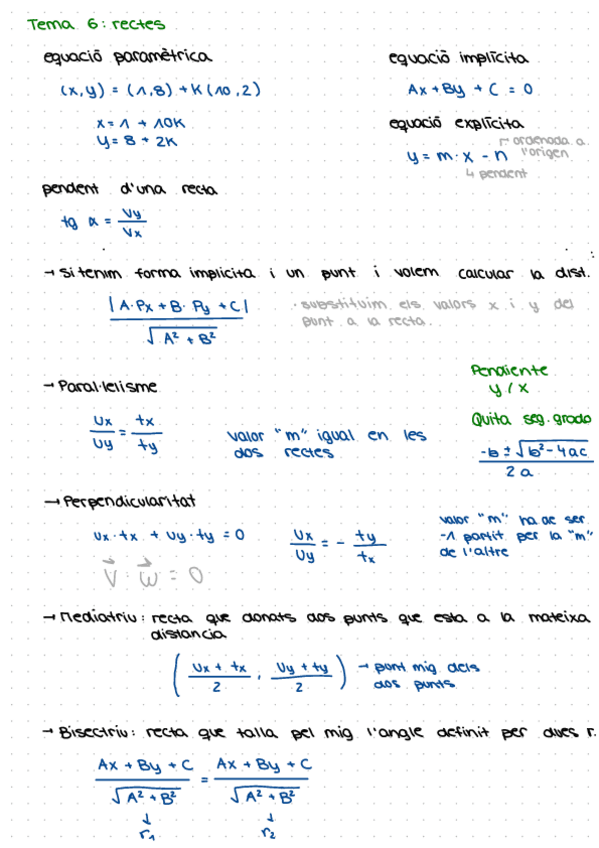 Tema 6: rectes
equació paramètrica
(x,y) = (1,8) + K(10,2)
x = 1 + 10K
y = 8 + 2K
equació implícita
Ax + By + C = 0
equació explícita
ordenada a
l'origen
y = m·x - n
pendent
pendent d'una recta
tg α = Vy / Vx
→ Si tenim forma implicita i un punt i volem calcular la dist.
|A·Px + B·Py + C| / √A² + B²
· substituim els valors x i y del
punt a la recta.
Pendiente
y / x
→ Paral·lelisme
Ux / Uy = tx / ty
valor "m" igual en les
dos rectes
Quita seg. grado
-b ± √b² - 4ac / 2a
→ Perpendicularitat
Ux·tx + Uy·ty = 0
Ux / Uy = - ty / tx
valor "m" ha de ser
-1 partit per la "m"
de l'altre
V · W = 0
→ Mediatriu: recta que donats dos punts que esta a la mateixa
distancia
(Ux + tx / 2, Uy + ty / 2) → punt mig dels
dos punts
→ Bisectriu: recta que talla pel mig l'angle definit per dues r.
Ax + By + C / √A² + B² = Ax + By + C / √A² + B²
↓ ↓
r₁ r₂